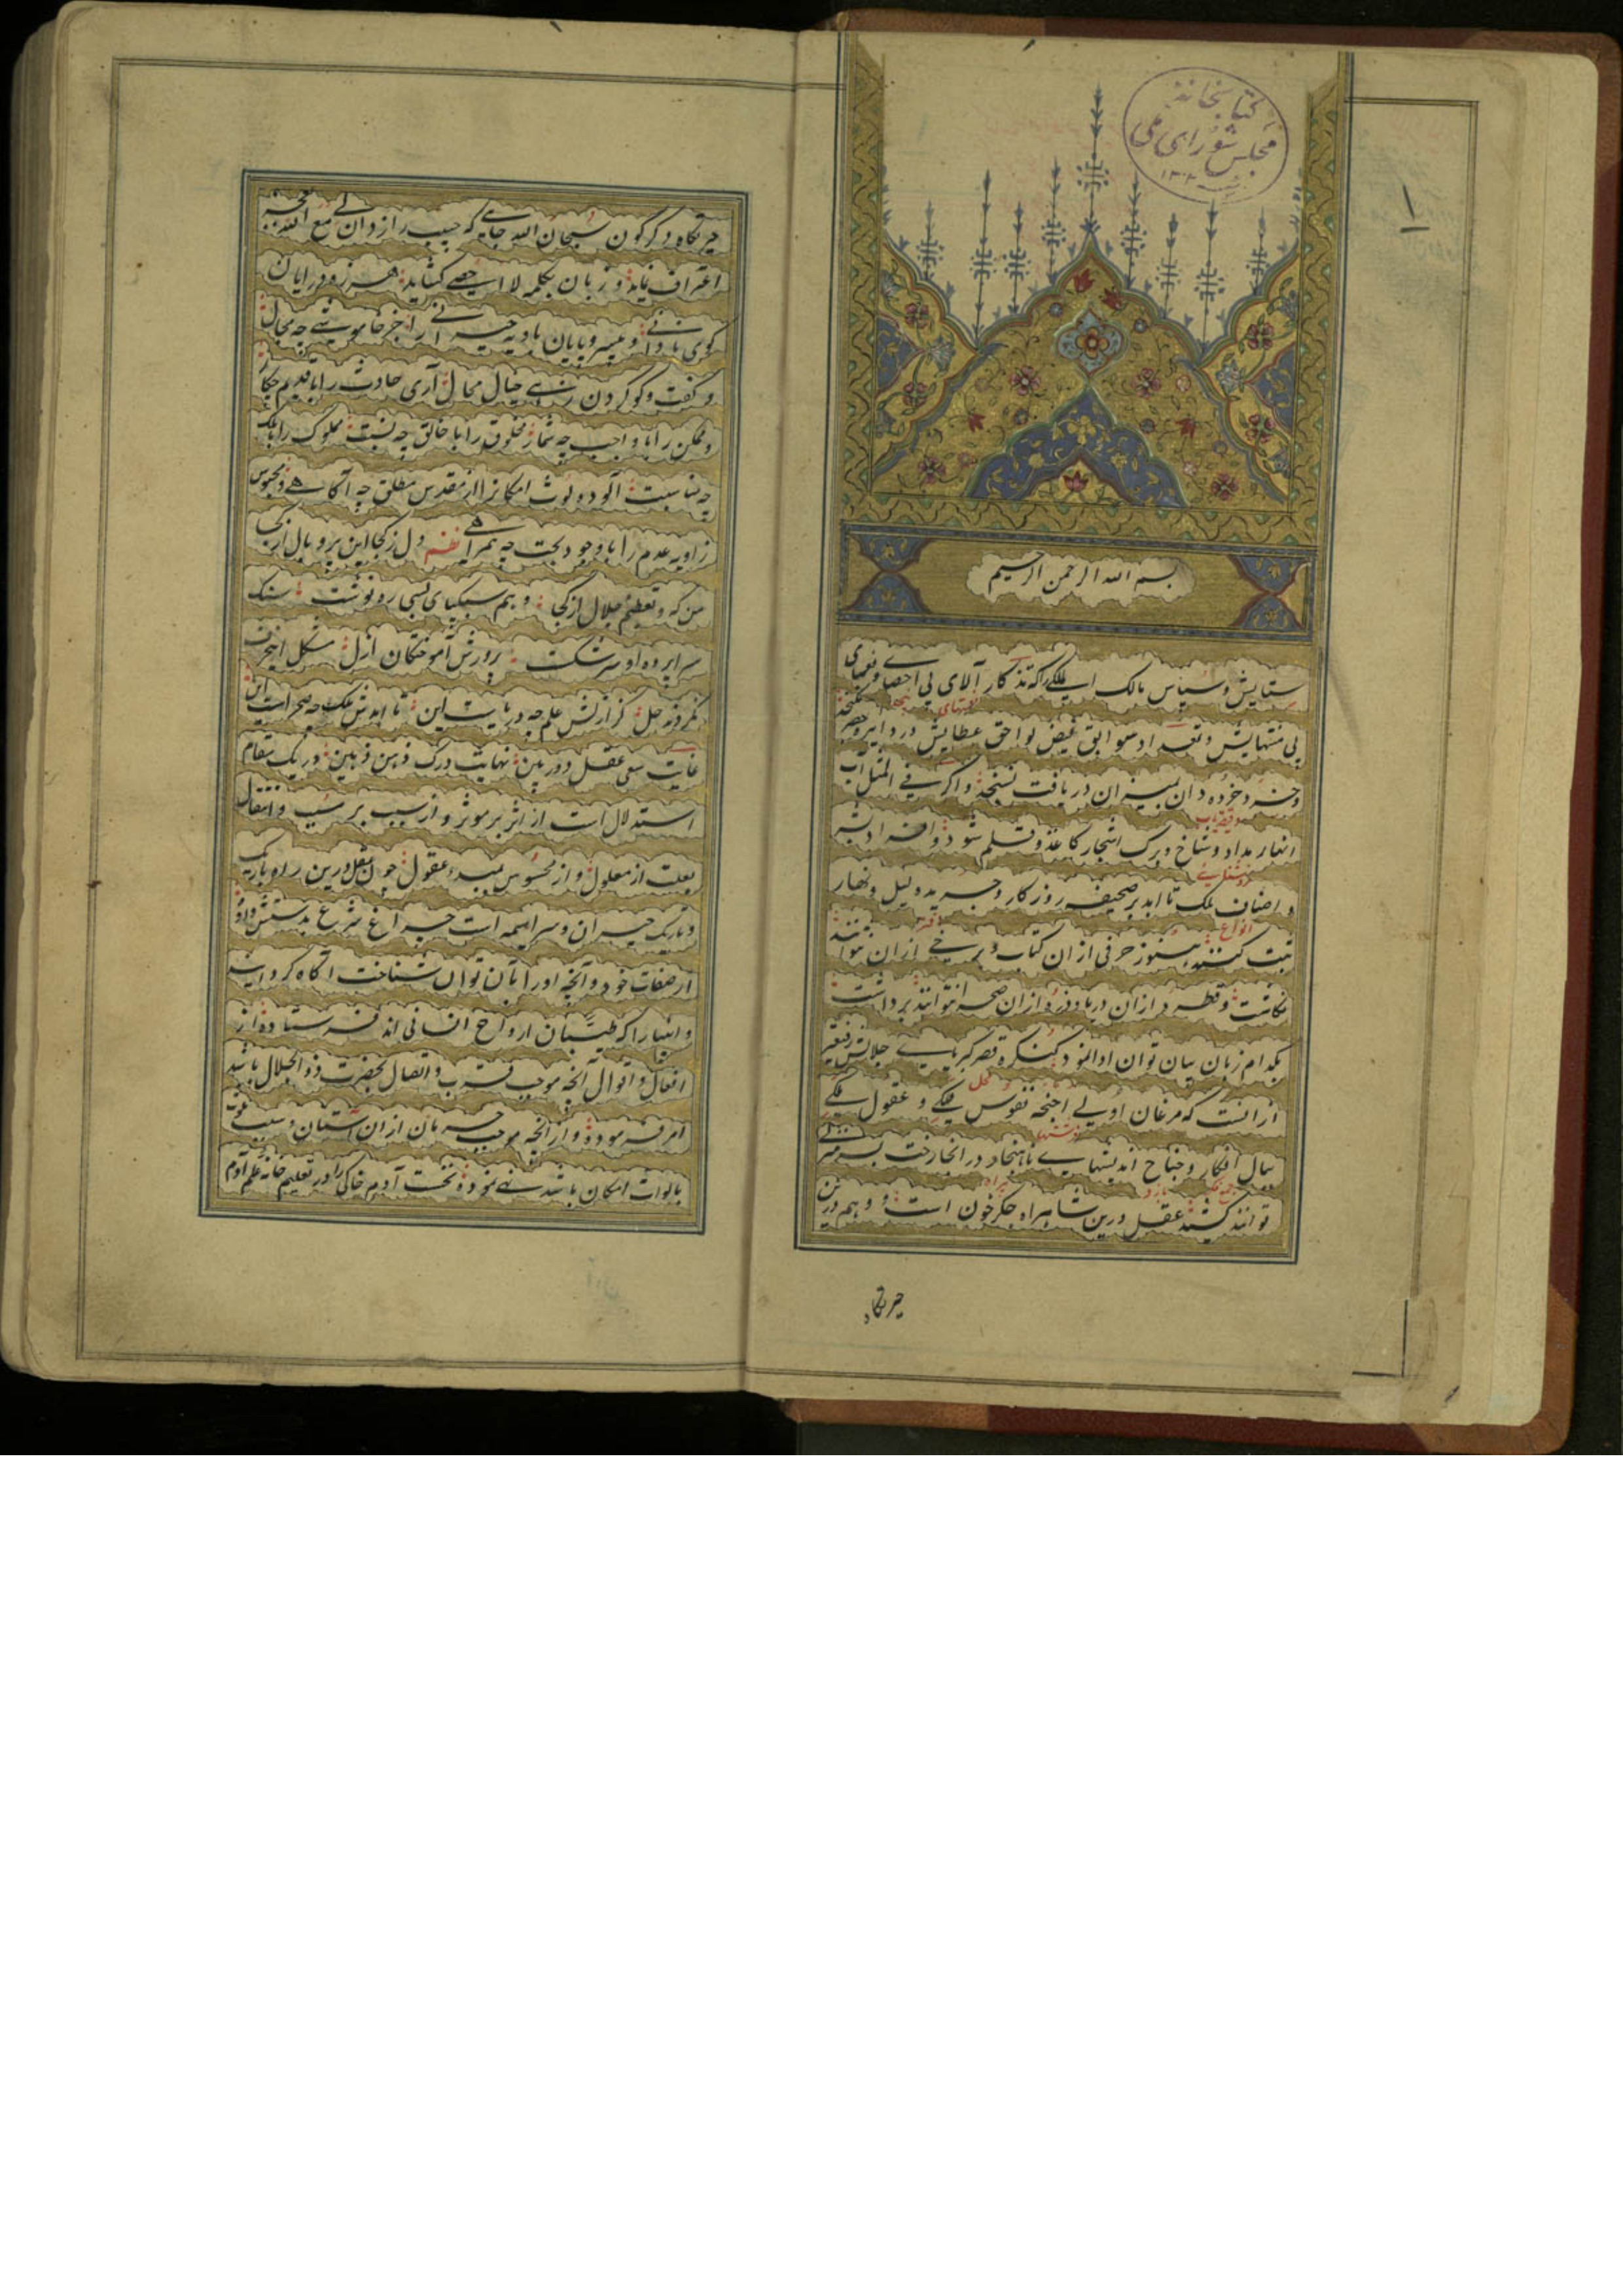 کتابخانهٔ
مجلس شورای ملی
۱
بسم الله الرحمن الرحیم
ستایش و سپاس مالک الملکی را که تذکار آلای بی احصا و نعمای
بی منتهایش و تعداد سوابق فیض لواحق عطایش در دایره حصر نکنجد
و خرد خرده دان بمیزان دریافت نسنجد و اکر فی المثل آب
انهار مداد و شاخ و برک اشجار کاغذ و قلم شود و افراد بشر
و اصناف ملک تا ابد بر صحیفه روزکار و جریده لیل و نهار
ثبت کنند هنوز حرفی از ان کتاب و برخی از ان نتوانند
نکاشت و قطره از ان دریا و ذره از ان صحرا نتوانند برداشت
بکدام زبان بیان توان ادا نمود کنکره قصر کبریای جلالش رفیعتر
از انست که مرغان اولی اجنحه نفوس فلکی و عقول ملکی
ببال افکار و جناح اندیشهای در انجا رخت بسر منزلی
توانند کشید عقل درین شاهراه جکر خون است و وهم درین
حیرتکاه
حیرتکاه دکرکون سبحان الله جایی که حبیب رازدان لی مع الله بعجز
اعتراف نماید و زبان بکلمه لا احصی کشاید هرزه درایان
کوی نادانی و بیسروپایان بادیه حیرانی را جز خاموشی چه مجال
و کفت و کو کردن زهی خیال محال آری حادث را با قدیم چکار
و ممکن را با واجب چه شمار مخلوق را با خالق چه نسبت مملوک را با مالک
چه مناسبت آلوده لوث امکانرا از مقدس مطلق چه آکاهی و محبوس
زاویه عدم را با وجود بحت چه همراهی نظم دل ز کجا این پر و بال از کجا
من که و تعظیم جلال از کجا وهم سبکپای بسی ره نوشت سنک
سراپرده او سر شکست پرورش آموختکان ازل مشکل این حرف
نکردند حل کز ازلش علم چه دریاست این تا ابدش ملک چه صحراست این
غایت سعی عقل دوربین نهایت درک ذهن ذهین در یک مقام
استدلال است از اثر بر موثر و از سبب بر مسبب و انتقال
بعلت از معلول و از محسوس بمبدء عقول چون عقل درین راه باریک
و تاریک حیران و سراسیمه است چراغ شرع بدستش داد و
از صفات خود و آنچه او را بآن توان شناخت آکاه کرد و انبیا
و انبیا را که طبیبان ارواح انسانی اند فرستاده از
افعال و اقوال آنچه موجب قرب و اتصال بحضرت ذو الجلال باشد
امر فرمود و از آنچه موجب حرمان از ان آستان و سبب
بالواث امکان باشد نهی نمود و نخست آدم خاکی را در تعلیم خانه علم آدم